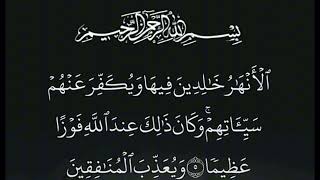 بِسْمِ اللَّهِ الرَّحْمَٰنِ الرَّحِيمِ
ٱلْأَنْهَٰرُ خَٰلِدِينَ فِيهَا وَيُكَفِّرَ عَنْهُمْ
سَيِّـَٔاتِهِمْ ۚ وَكَانَ ذَٰلِكَ عِندَ ٱللَّهِ فَوْزًا
عَظِيمًا ٥ وَيُعَذِّبَ ٱلْمُنَٰفِقِينَ